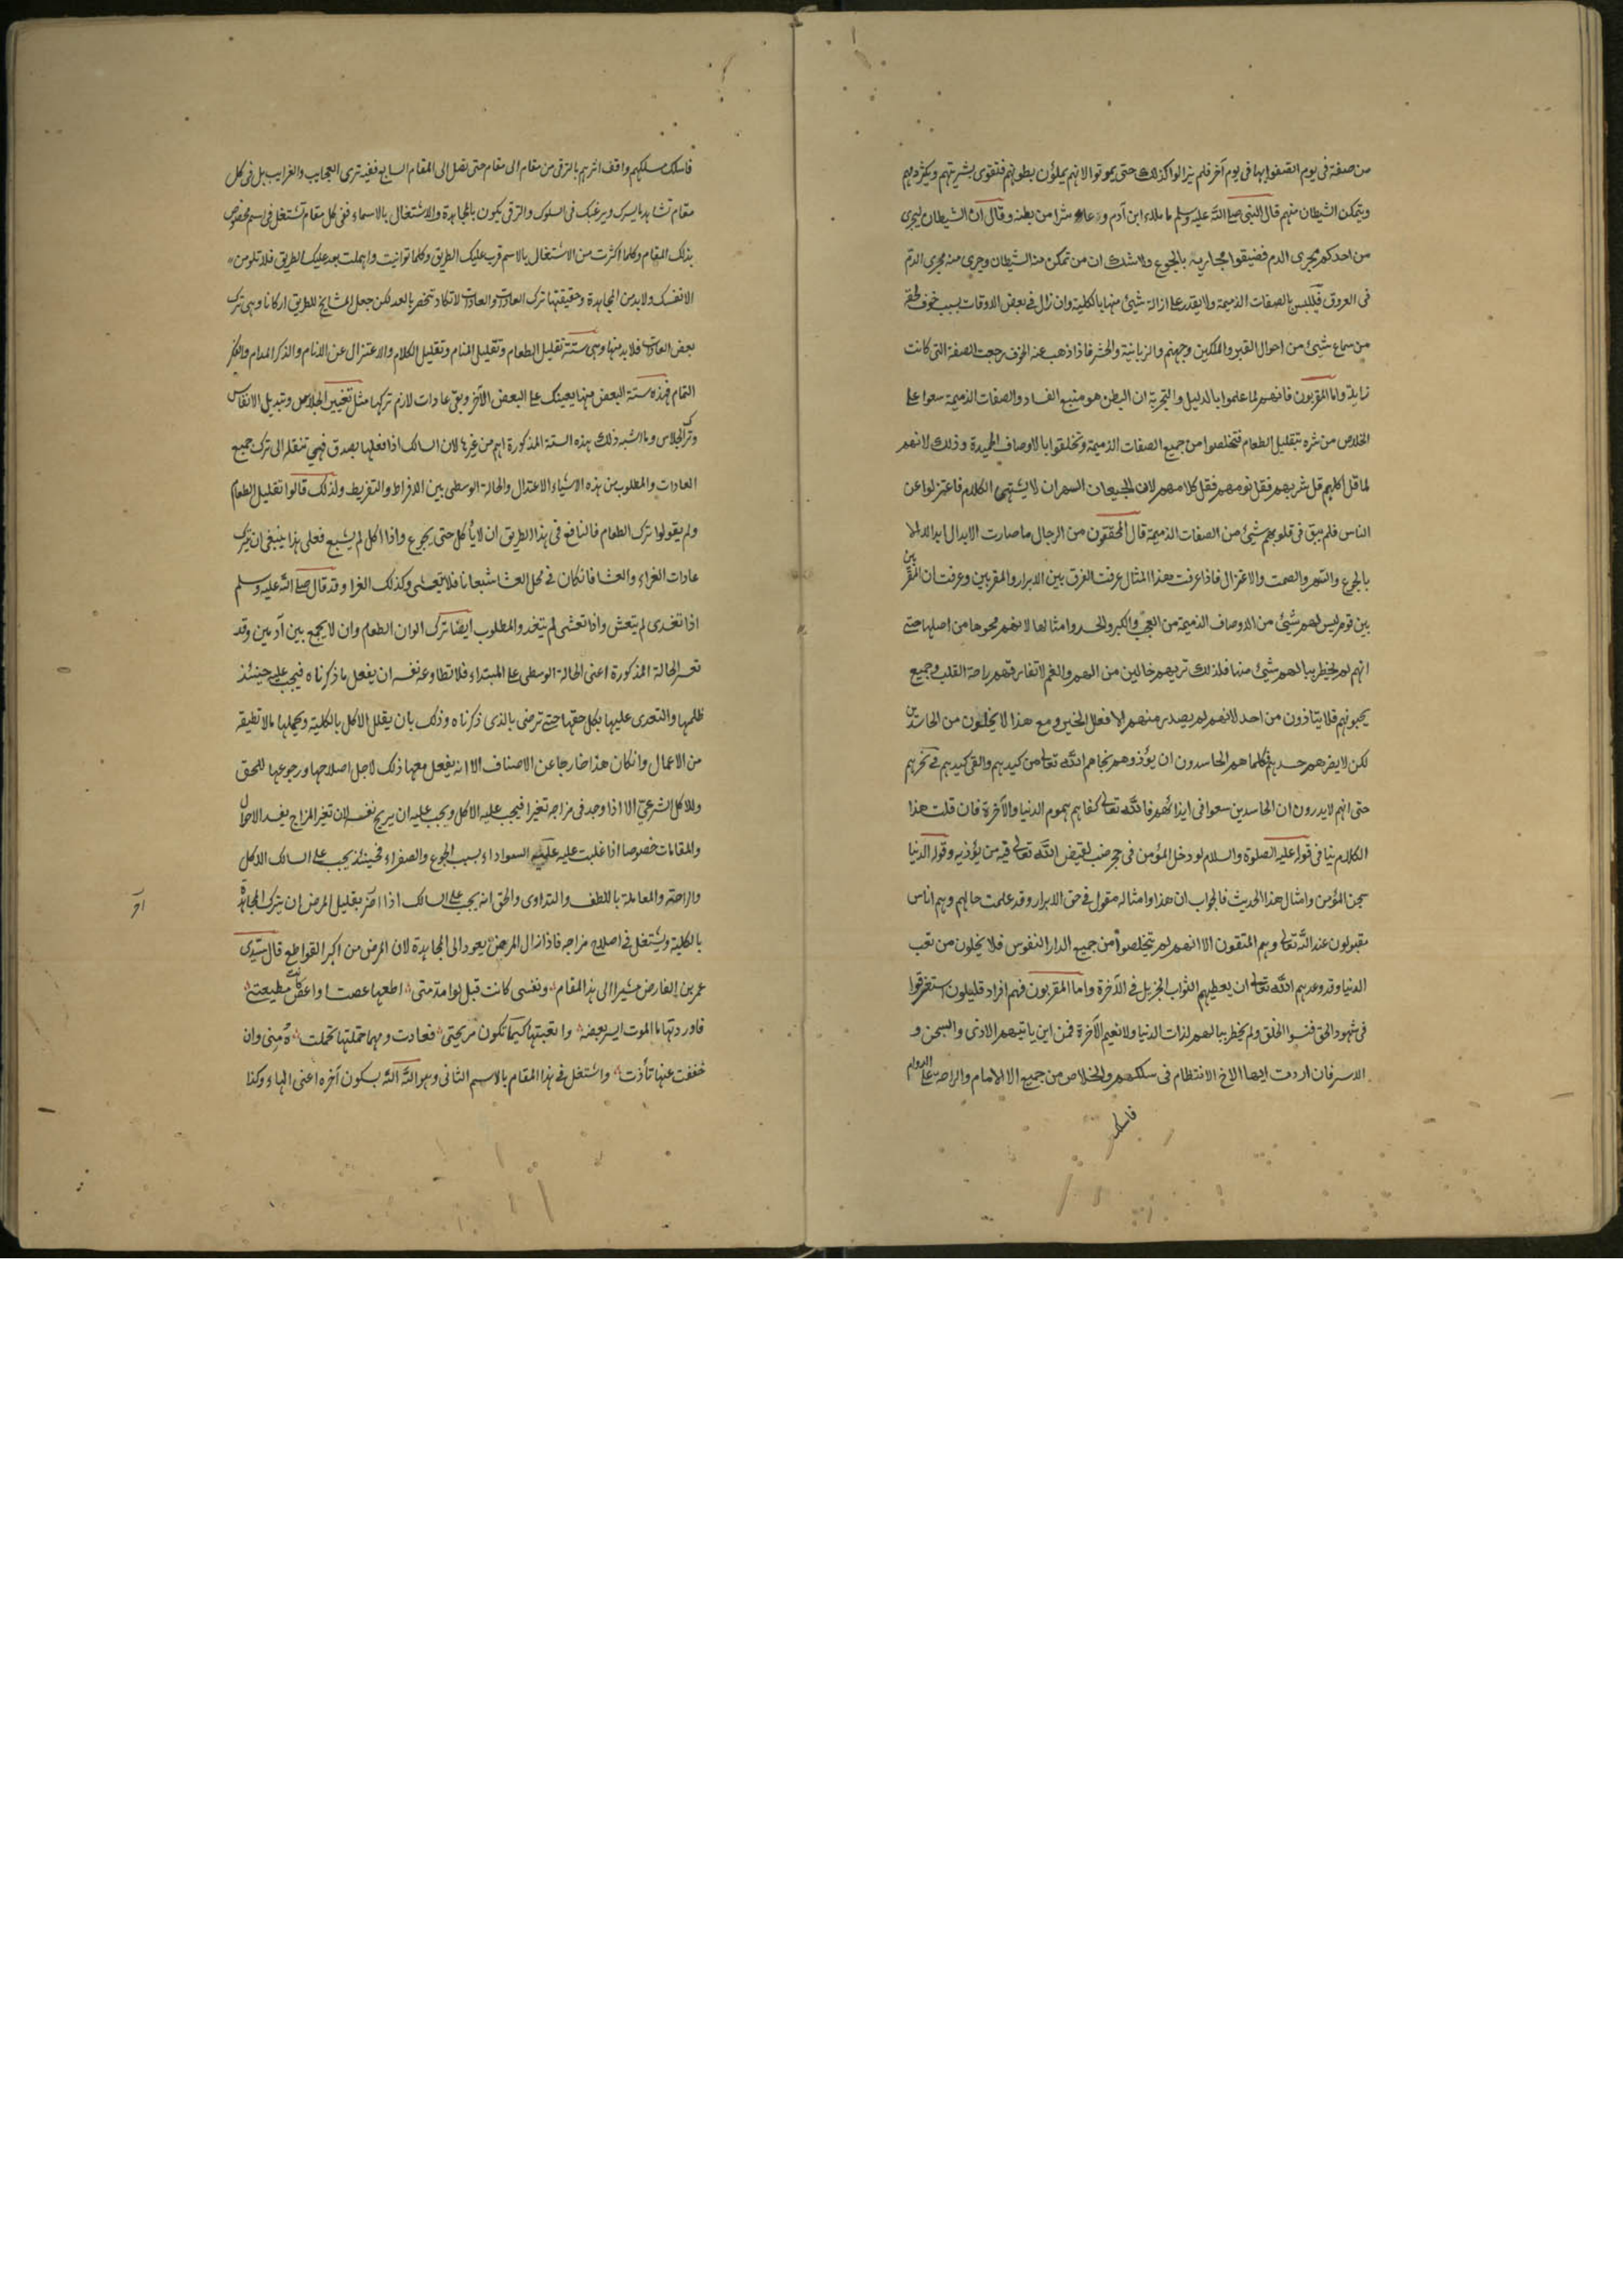 من صفة فى يوم اتصفوا بها فى يوم آخر فلم يزالوا كذلك حتى يموتوا لانهم يملؤن بطونهم فتقوى بشريتهم ويكثر دمهم
ويتمكن الشيطان منهم قال النبى صلى الله عليه وسلم ما ملاء ابن آدم وعاء شرا من بطنه وقال ان الشيطان ليجرى
من احدكم مجرى الدم فضيقوا مجاريه بالجوع ولا شك ان من تمكن منه الشيطان وجرى منه مجرى الدم
فى العروق فيتلبس بالصفات الذميمة ولا يقدر على ازالة شيئ منها بالكلية وان زال فى بعض الاوقات بسبب خوف لحقه
من سماع شيئ من احوال القبر والملكين وجهنم والزبانية والحشر فاذا ذهب عنه الخوف رجعت الصفة التى كانت
زايلة واما المقربون فانهم لما علموا بالدليل والتجربة ان البطن هو منبع الفساد والصفات الذميمة سعوا على
الخلاص من شره بتقليل الطعام فتخلصوا من جميع الصفات الذميمة وتخلقوا بالاوصاف الحميدة وذلك لانهم
لما قل اكلهم قل شربهم فقل نومهم فقل كلامهم لان الجيعان السهران لا يشتهى الكلام فاعتزلوا عن
الناس فلم يبق فى قلوبهم شيئ من الصفات الذميمة قال المحققون من الرجال ما صارت الابدال ابدالا الا
بالجوع والسهر والصمت والاعتزال فاذا عرفت هذا المثال عرفت الفرق بين الابرار والمقربين وعرفت ان المقر
بين قوم ليس لهم شيئ من الاوصاف الذميمة من العجب والكبر والحسد وامثالها لانهم محوها من اصلها حتى
انهم لم يخطر ببالهم شيئ منها فلذلك تريهم خالين من الهم والغم لا تفارقهم راحة القلب وجميع
يحبونهم فلا يتاذون من احد لانهم لم يصدر منهم الا فعل الخير ومع هذا لا يخلون من الحاسدين
لكن لا يضرهم حسدهم فكلما هم الحاسدون ان يؤذوهم نجاهم الله تعالى من كيدهم والقى كيدهم فى نحرهم
حتى انهم لا يدرون ان الحاسدين سعوا فى ايذائهم فالله تعالى كفاهم هموم الدنيا والآخرة فان قلت هذا
الكلام ينافى قوله عليه الصلوة والسلام لو دخل المؤمن فى حجر ضب لقيض الله تعالى فيه من يؤذيه وقوله الدنيا
سجن المؤمن وامثال هذا الحديث فالجواب ان هذا وامثاله مقول فى حق الابرار وقد علمت حالهم وهم اناس
مقبولون عند الله تعالى وهم المتقون الا انهم لم يتخلصوا من جميع النفوس فلا يخلون من تعب
الدنيا وقد وعدهم الله تعالى ان يعطيهم الثواب الجزيل فى الآخرة واما المقربون فهم افراد قليلون استغرقوا
فى شهود الحق فنسوا الخلق ولم يخطر ببالهم لذات الدنيا ولا نعيم الآخرة فمن اين ياتيهم الاذى والسجن و
الاسر فان اردت ايها الاخ الانتظام فى سلكهم والخلاص من جميع الالام والراحة على الدوام
فاسلك
فاسلك مسلكهم واقف اثرهم بالترقى من مقام الى مقام حتى تصل الى المقام السابع ففيه ترى العجايب والغرايب بل فى كل
مقام تشاهد ما يسرك ويرغبك فى السلوك والترقى يكون بالمجاهدة والاشتغال بالاسماء ففى كل مقام تشتغل فى اسم مخصوص
بذلك المقام وكلما اكثرت من الاشتغال بالاسم قرب عليك الطريق وكلما توانيت واهملت بعد عليك الطريق فلا تلومن
الا نفسك ولا بد من المجاهدة وحقيقتها ترك العادات والعادات لا تكاد تنحصر بالعد لكن جعل المشايخ للطريق اركانا وهى ترك
بعض العادات فلا بد منها وهى ستة تقليل الطعام وتقليل المنام وتقليل الكلام والاعتزال عن الانام والذكر المدام والفكر
التمام فهذه ستة البعض منها يعينك على البعض الآخر وبقى عادات لازم تركها مثل تغيير الجلاس وتبديل الانفاس
وترك الجلاس وما اشبه ذلك هذه الستة المذكورة اهم من غيرها لان السالك اذا فعلها بصدق فهى تنقله الى ترك جميع
العادات والمطلوب من هذه الاشياء الاعتدال والحالة الوسطى بين الافراط والتفريط ولذلك قالوا تقليل الطعام
ولم يقولوا ترك الطعام فالنافع فى هذا الطريق ان لا يأكل حتى يجوع واذا اكل لم يشبع فعلى هذا ينبغى ان يترك
عادات الغداء والعشا فان كان فى محل العشا شبعانا فلا يتعشى وكذلك الغدا وقد قال صلى الله عليه وسلم
اذا تغدى لم يتعش واذا تعشى لم يتغد والمطلوب ايضا ترك الوان الطعام وان لا يجمع بين آدمين وقد
تعسر الحالة المذكورة اعنى الحالة الوسطى على المبتداء فلا تطاوعه نفسه ان يفعل ما ذكرناه فيجب عليه حينئذ
ظلمها والتعدى عليها بكل حقها حتى ترضى بالذى ذكرناه وذلك بان يقلل الاكل بالكلية ويحملها ما لا تطيقه
من الاعمال وان كان هذا خارجا عن الانصاف الا انه يفعل معها ذلك لاجل اصلاحها ورجوعها للحق
وللاكل الشرعى الا اذا وجد فى مزاجه تغيرا فيجب عليه الاكل ويجب عليه ان يريح نفسه لان تغير المزاج يفسد الاحوال
والمقامات خصوصا اذا غلبت عليه السوداء بسبب الجوع والصفراء فحينئذ يجب على السالك الاكل
والراحة والمعاملة باللطف والتداوى والحق انه يجب على السالك اذا اضر بقليل المرض ان يترك المجاهدة
بالكلية ويشتغل فى اصلاح مزاجه فاذا زال المرض يعود الى المجاهدة لان المرض من اكبر القواطع قال سيدى
عمر بن الفارض مشيرا الى هذا المقام ونفسى كانت قبل لوامة متى اطعها عصت او اعص كانت مطيعتى
فاوردتها ما الموت ايسر بعضه واتعبتها كيما تكون مريحتى فعادت ومهما حملتها تحملت ه منى وان
خففت عنها تأذت واشتغل فى هذا المقام بالاسم الثانى وهو الله الله بسكون آخره اعنى الهاء وكذا